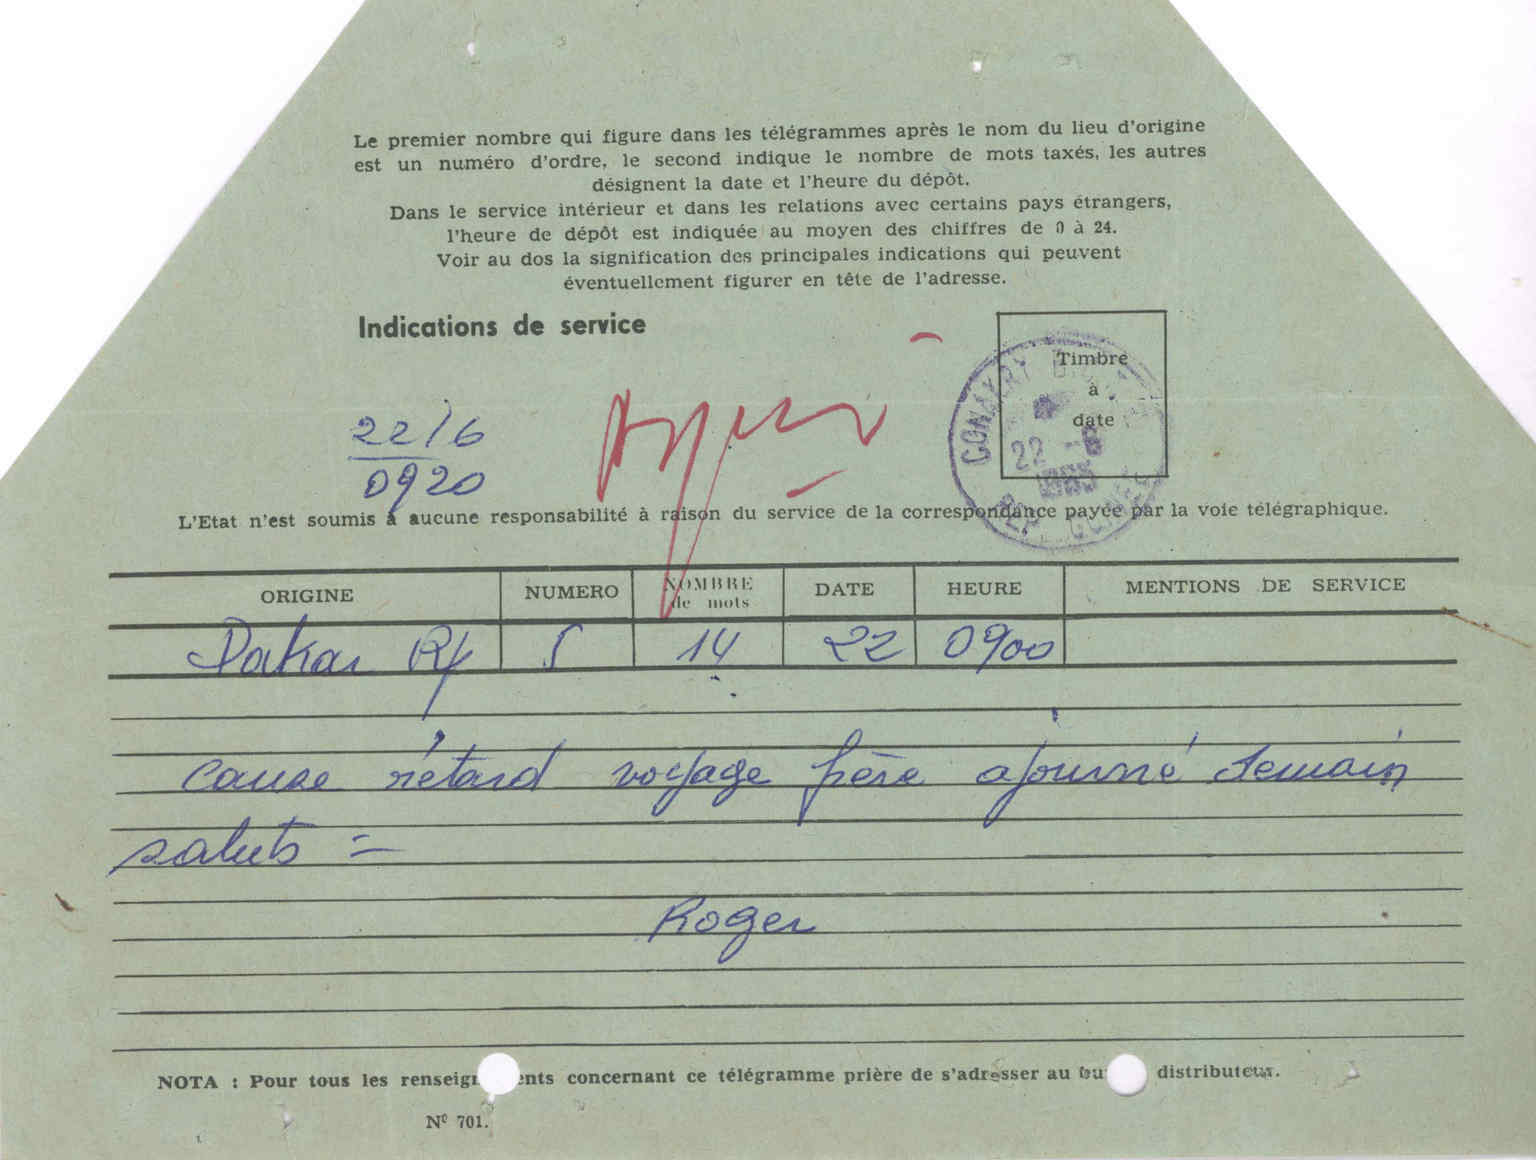 Le premier nombre qui figure dans les télégrammes après le nom du lieu d'origine
est un numéro d'ordre, le second indique le nombre de mots taxés, les autres
désignent la date et l'heure du dépôt.
Dans le service intérieur et dans les relations avec certains pays étrangers,
l'heure de dépôt est indiquée au moyen des chiffres de 0 à 24.
Voir au dos la signification des principales indications qui peuvent
éventuellement figurer en tête de l'adresse.
Indications de service
Timbre
à
date
CONAKRY
22 -6
1965
REP. GUINÉE
22/6
0920
L'Etat n'est soumis à aucune responsabilité à raison du service de la correspondance payée par la voie télégraphique.
ORIGINE NUMERO NOMBRE de mots DATE HEURE MENTIONS DE SERVICE
Dakar Rp 5 14 22 0900
cause retard voyage frère ajourné demain
saluts =
Roger
NOTA : Pour tous les renseign ents concernant ce télégramme prière de s'adresser au bur distributeur.
Nº 701.